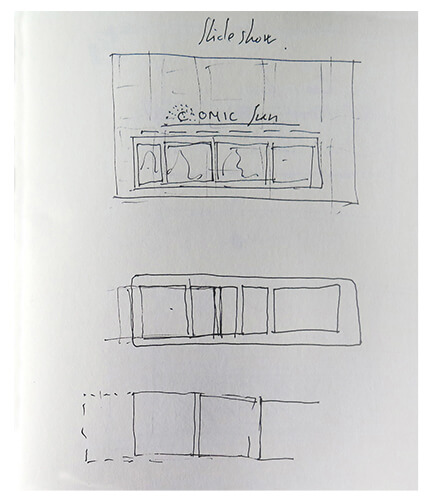 Slide show.
COMIC Sun